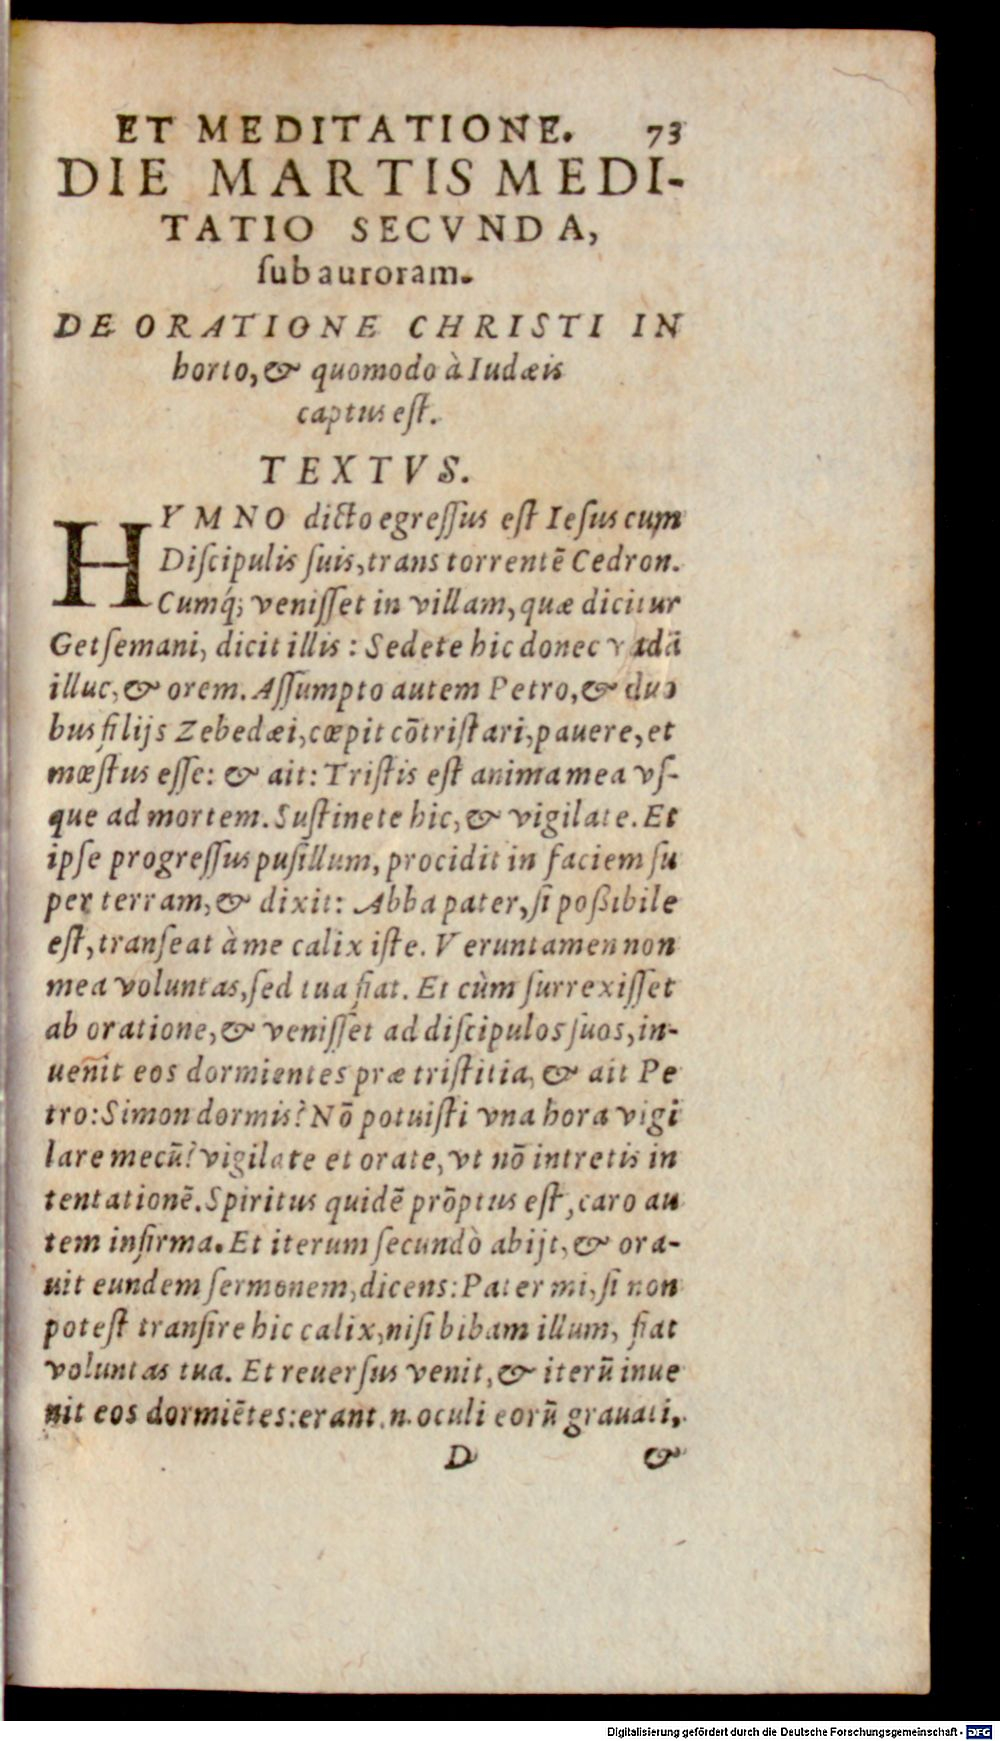 ET MEDITATIONE. 73
DIE MARTIS MEDI-
TATIO SECVNDA,
ſub auroram.
DE ORATIONE CHRISTI IN
horto, & quomodo à Iudæis
captus eſt.
TEXTVS.
HYMNO dicto egreſſus eſt Ieſus cum
Diſcipulis ſuis, trans torrentē Cedron.
Cumq́; veniſſet in villam, quæ dicitur
Getſemani, dicit illis: Sedete hic donec vadā
illuc, & orem. Aſſumpto autem Petro, & duo
bus filijs Zebedæi, cœpit cōtriſtari, pauere, et
mœſtus eſſe: & ait: Triſtis eſt anima mea vſ-
que ad mortem. Suſtinete hic, & vigilate. Et
ipſe progreſſus puſillum, procidit in faciem ſu
per terram, & dixit: Abba pater, ſi poßibile
eſt, tranſeat à me calix iſte. Veruntamen non
mea voluntas, ſed tua fiat. Et cùm ſurrexiſſet
ab oratione, & veniſſet ad diſcipulos ſuos, in-
uenit eos dormientes præ triſtitia, & ait Pe
tro: Simon dormis? Nō potuiſti vna hora vigi
lare mecū? vigilate et orate, vt nō intretis in
tentationē. Spiritus quidē prōptus eſt, caro au
tem infirma. Et iterum ſecundò abijt, & ora-
uit eundem ſermonem, dicens: Pater mi, ſi non
poteſt tranſire hic calix, niſi bibam illum, fiat
voluntas tua. Et reuerſus venit, & iterū inue
nit eos dormiētes: erant .n. oculi eorū grauati,
D &
Digitalisierung gefördert durch die Deutsche Forschungsgemeinschaft - DFG